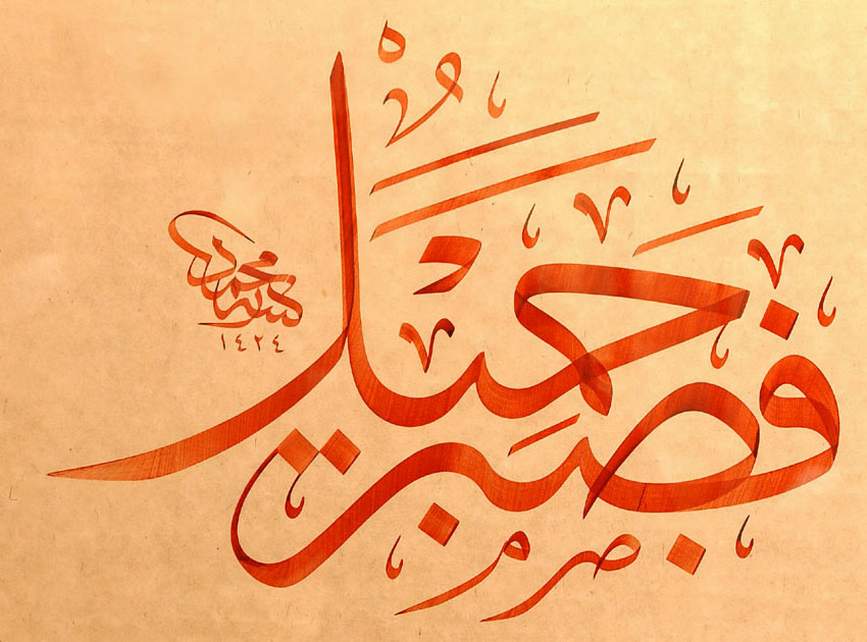 فَصَبْرٌ جَمِيلٌ
كتبه محمد
١٤٢٤